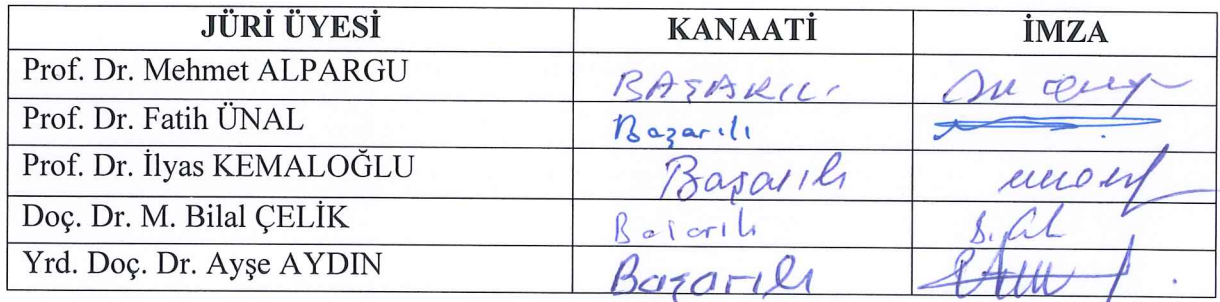 JÜRİ ÜYESİ KANAATİ İMZA
Prof. Dr. Mehmet ALPARGU BAŞARILI
Prof. Dr. Fatih ÜNAL Başarılı
Prof. Dr. İlyas KEMALOĞLU Başarılı
Doç. Dr. M. Bilal ÇELİK Başarılı
Yrd. Doç. Dr. Ayşe AYDIN Başarılı